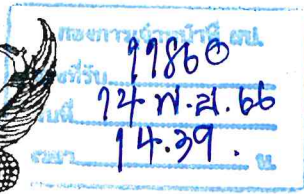 กองการเจ้าหน้าที่
เลขที่รับ 11860
วันที่ 14 พ.ย. 66
เวลา 14.39 น.